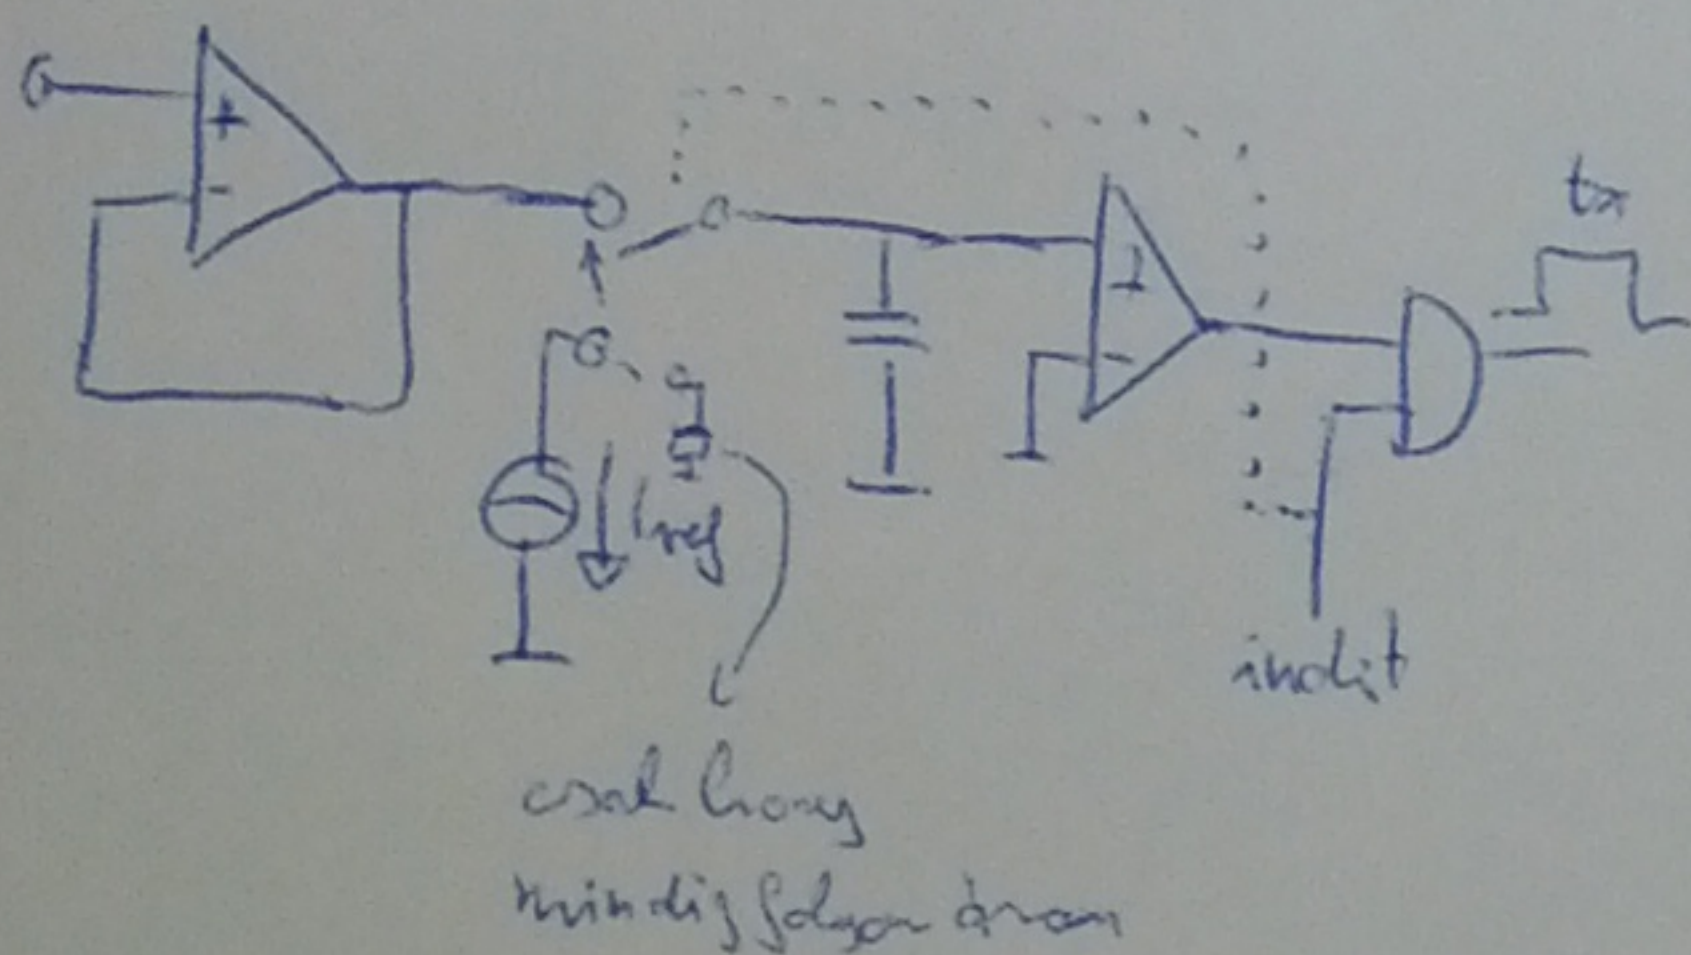 +
-
tx
+
-
Iref
indit
csak hogy
mindig folyon áram